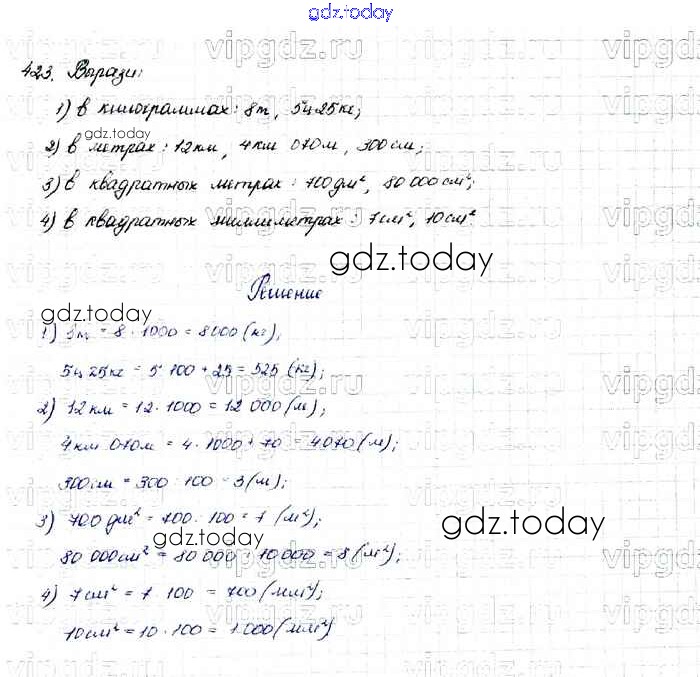 gdz.today
423. Вырази:
1) в килограммах: 8т, 5ц 25кг;
gdz.today
2) в метрах: 12км, 4км 070м, 300см;
3) в квадратных метрах: 700дм², 80 000см²;
4) в квадратных миллиметрах: 7см², 10см².
gdz.today
Решение
gdz.today
1) 8т = 8 · 1000 = 8000 (кг);
5ц 25кг = 5 · 100 + 25 = 525 (кг);
2) 12км = 12 · 1000 = 12 000 (м);
4км 070м = 4 · 1000 + 70 = 4070 (м);
300см = 300 : 100 = 3 (м);
3) 700дм² = 700 : 100 = 7 (м²);
gdz.today
80 000см² = 80 000 : 10 000 = 8 (м²);
4) 7см² = 7 · 100 = 700 (мм²);
10см² = 10 · 100 = 1000 (мм²)
vipgdz.ru